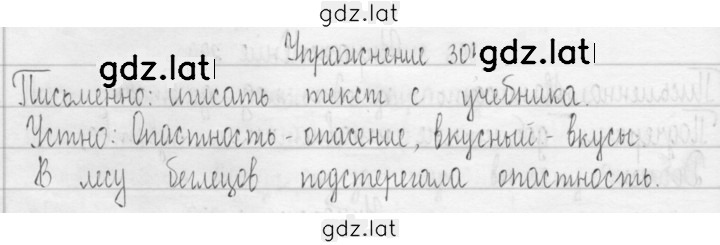 gdz.lat
Упражнение 301
gdz.lat gdz.lat
Письменно: списать текст с учебника.
Устно: Опастность - опасение, вкусный - вкусы.
В лесу беглецов подстерегала опастность.
gdz.lat